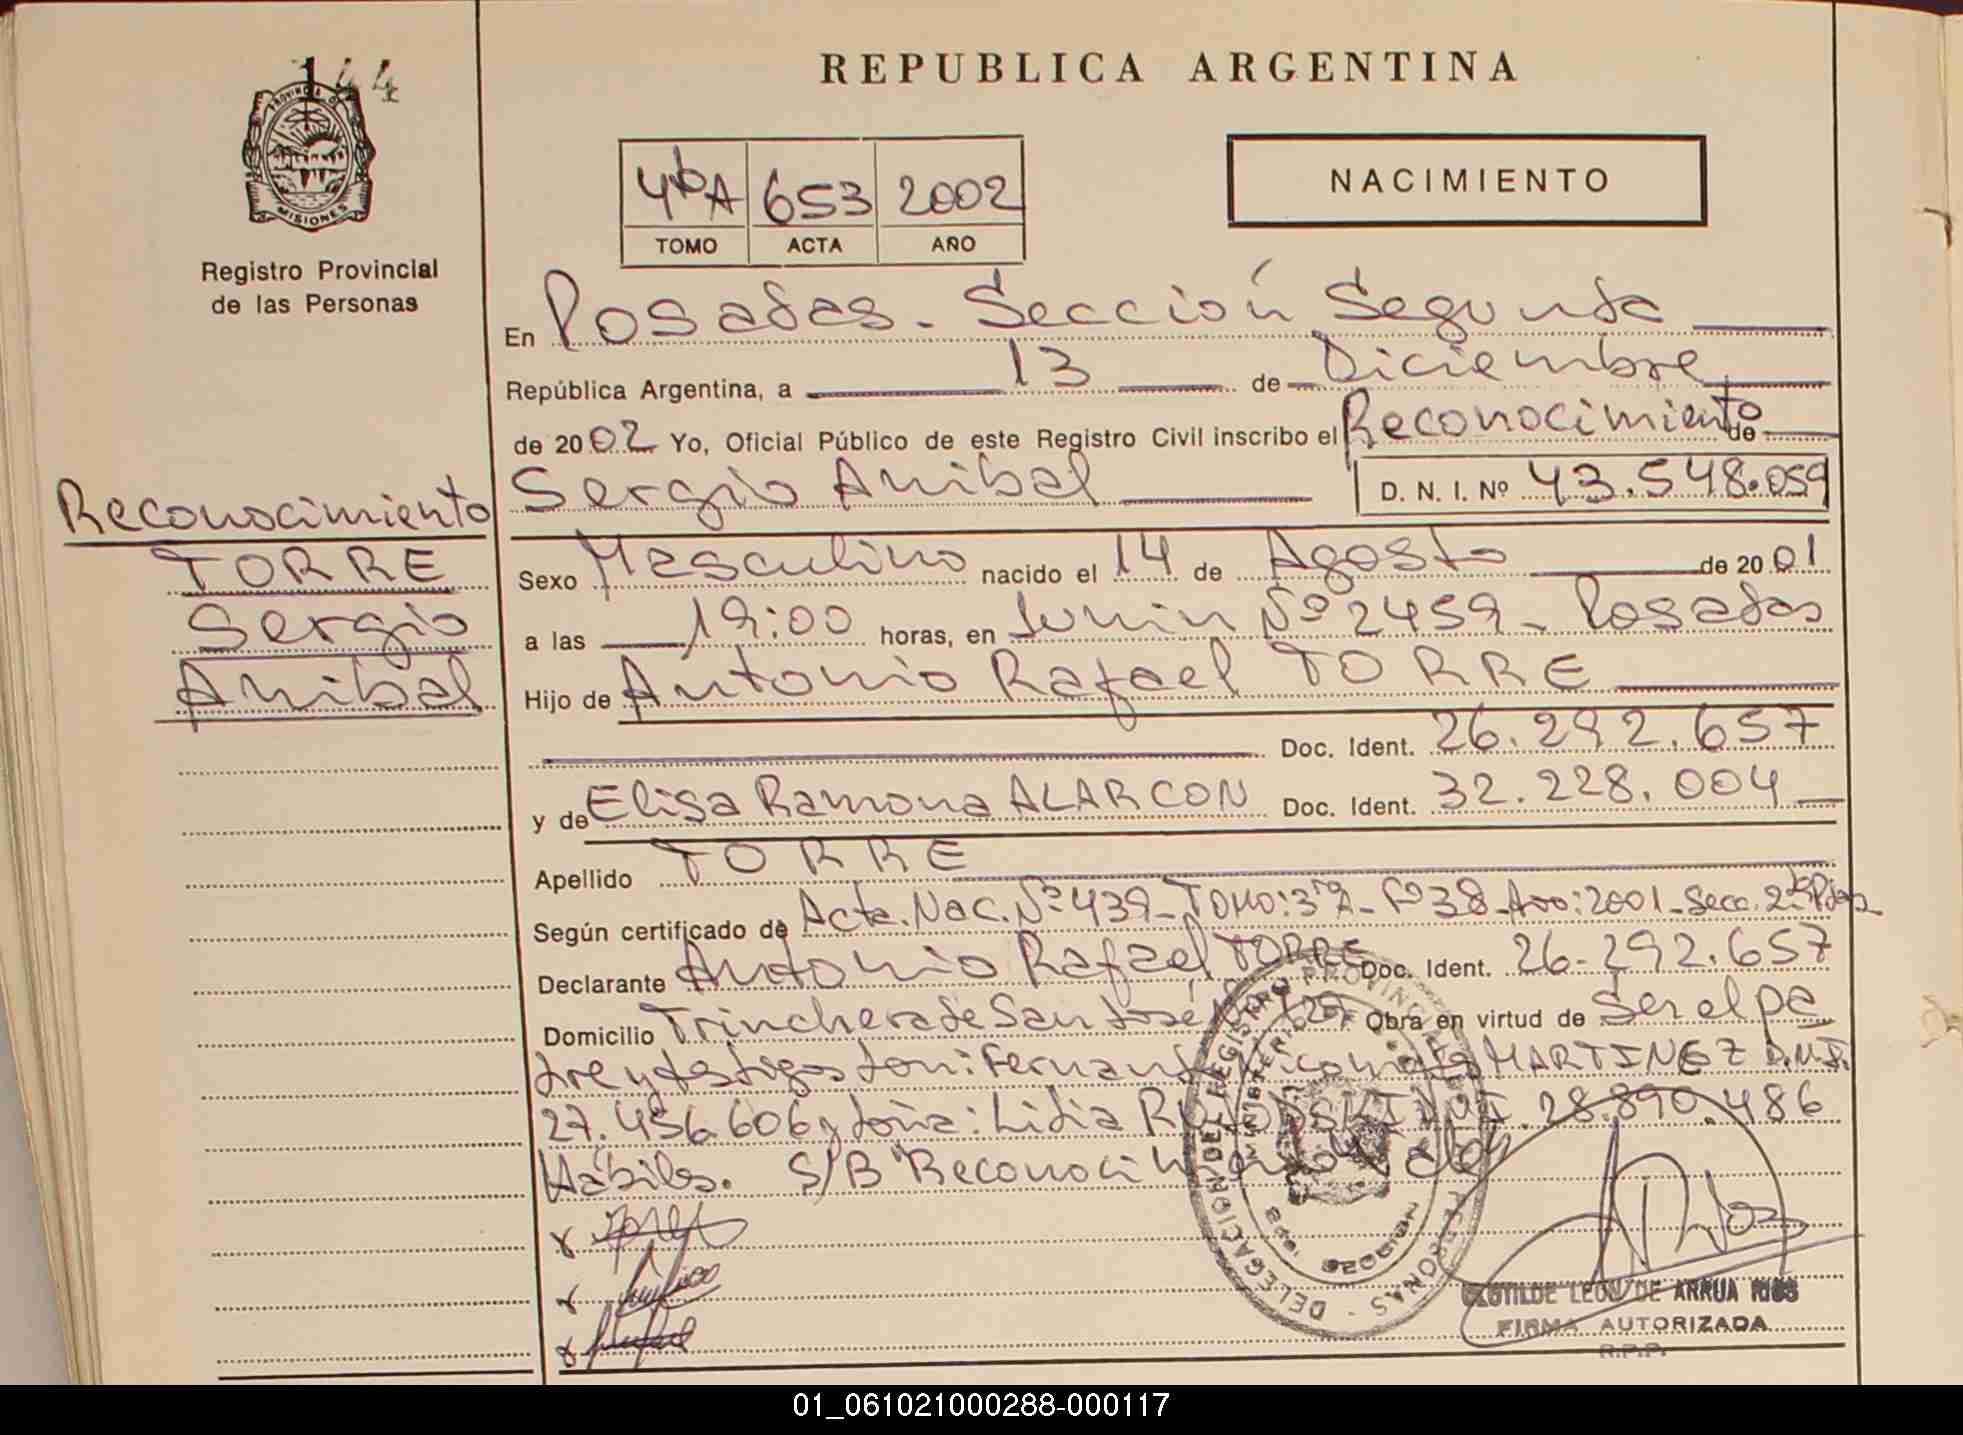 144
REPUBLICA ARGENTINA
PROVINCIA DE
MISIONES
Registro Provincial
de las Personas
4toA 653 2002
TOMO ACTA AÑO
NACIMIENTO
En Posadas - Sección Segunda
República Argentina, a 13 de Diciembre
de 2002 Yo, Oficial Público de este Registro Civil inscribo el Reconocimiento de
Sergio Anibal D. N. I. Nº 43.548.059
Reconocimiento
TORRE
Sergio
Anibal
Sexo Masculino nacido el 14 de Agosto de 2001
a las 19:00 horas, en Junin Nº 2459 - Posadas
Hijo de Antonio Rafael TORRE
Doc. Ident. 26.292.657
y de Elisa Ramona ALARCON Doc. Ident. 32.228.004
Apellido TORRE
Según certificado de Acta. Nac. Nº 439 - Tomo: 3roA - Fº 38 - Año: 2001 - Secc. 2da
Declarante Antonio Rafael TORRE Doc. Ident. 26-292.657
Domicilio Trinchera de San José Obra en virtud de Ser el pa
dre y testigos Don: MARTINEZ D.N.I.
27.436.606 y doña: Lidia 28.890.486
Hábiles. S/B "Reconocimiento" Vale
DELEGACION DEL REGISTRO PROVINCIAL DE LAS PERSONAS
MINISTERIO
MISIONES
CLOTILDE LEON DE ARRUA RIOS
FIRMA AUTORIZADA
R.P.P.
01_061021000288-000117